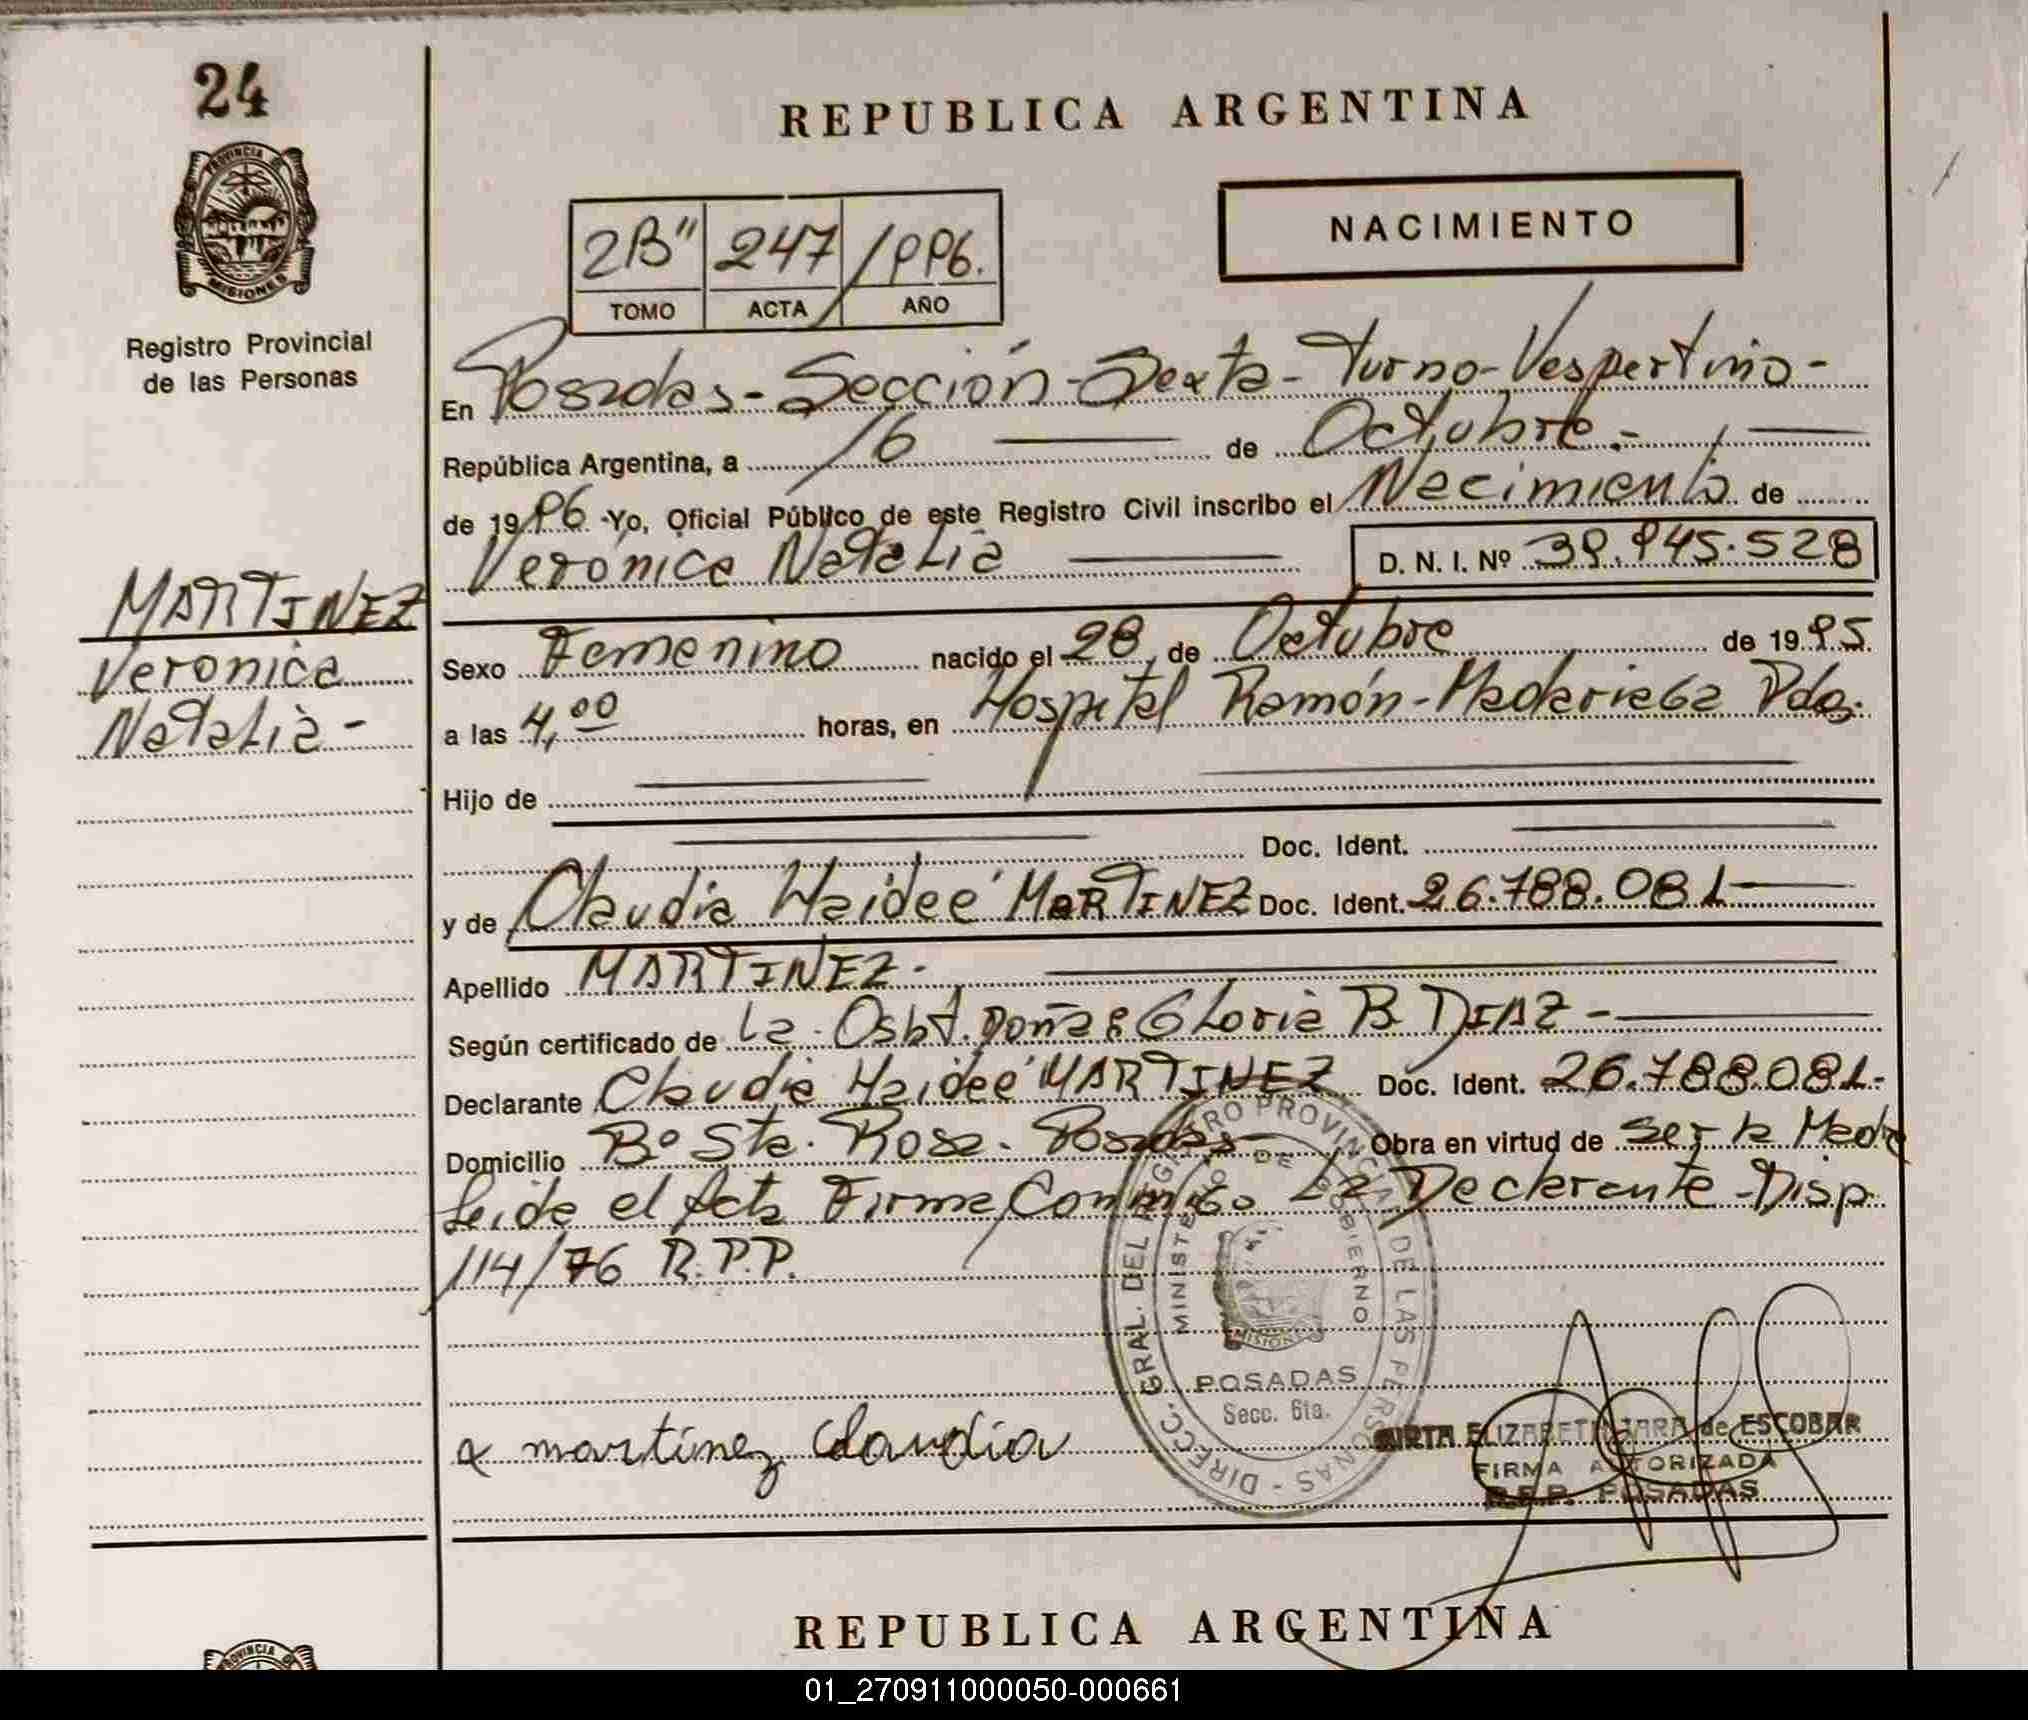 24
PROVINCIA DE
MISIONES
Registro Provincial
de las Personas
MARTINEZ
Veronica
Natalia -
REPUBLICA ARGENTINA
2B" 247 1996.
TOMO ACTA AÑO
NACIMIENTO
En Posadas - Sección - Sexta - Turno - Vespertino -
República Argentina, a 16 de Octubre.-
de 1996 -Yo, Oficial Público de este Registro Civil inscribo el Nacimiento de
Verónica Natalia D. N. I. Nº 39.945.528
Sexo Femenino nacido el 28 de Octubre de 1995.
a las 4,00 horas, en Hospital Ramón - Madariaga Pdas.
Hijo de
Doc. Ident.
y de Claudia Haideé MARTINEZ Doc. Ident. 26.788.081
Apellido MARTINEZ.
Según certificado de La. Obst. Doña Gloria B DIAZ -
Declarante Claudia Haideé MARTINEZ Doc. Ident. 26.788.081.-
Domicilio Bº Sta. Rosa. Posadas Obra en virtud de ser la Madre
Leida el Acta Firma Conmigo La Declarante - Disp.
114/76 R.P.P.
DIRECC. GRAL. DEL REGISTRO PROVINCIAL DE LAS PERSONAS -
MINISTERIO DE GOBIERNO
MISIONES
POSADAS
Secc. 6ta.
x martinez Claudia
MIRTA ELIZABETH JARA de ESCOBAR
FIRMA AUTORIZADA
R.P.P. POSADAS
REPUBLICA ARGENTINA
PROVINCIA
01_270911000050-000661